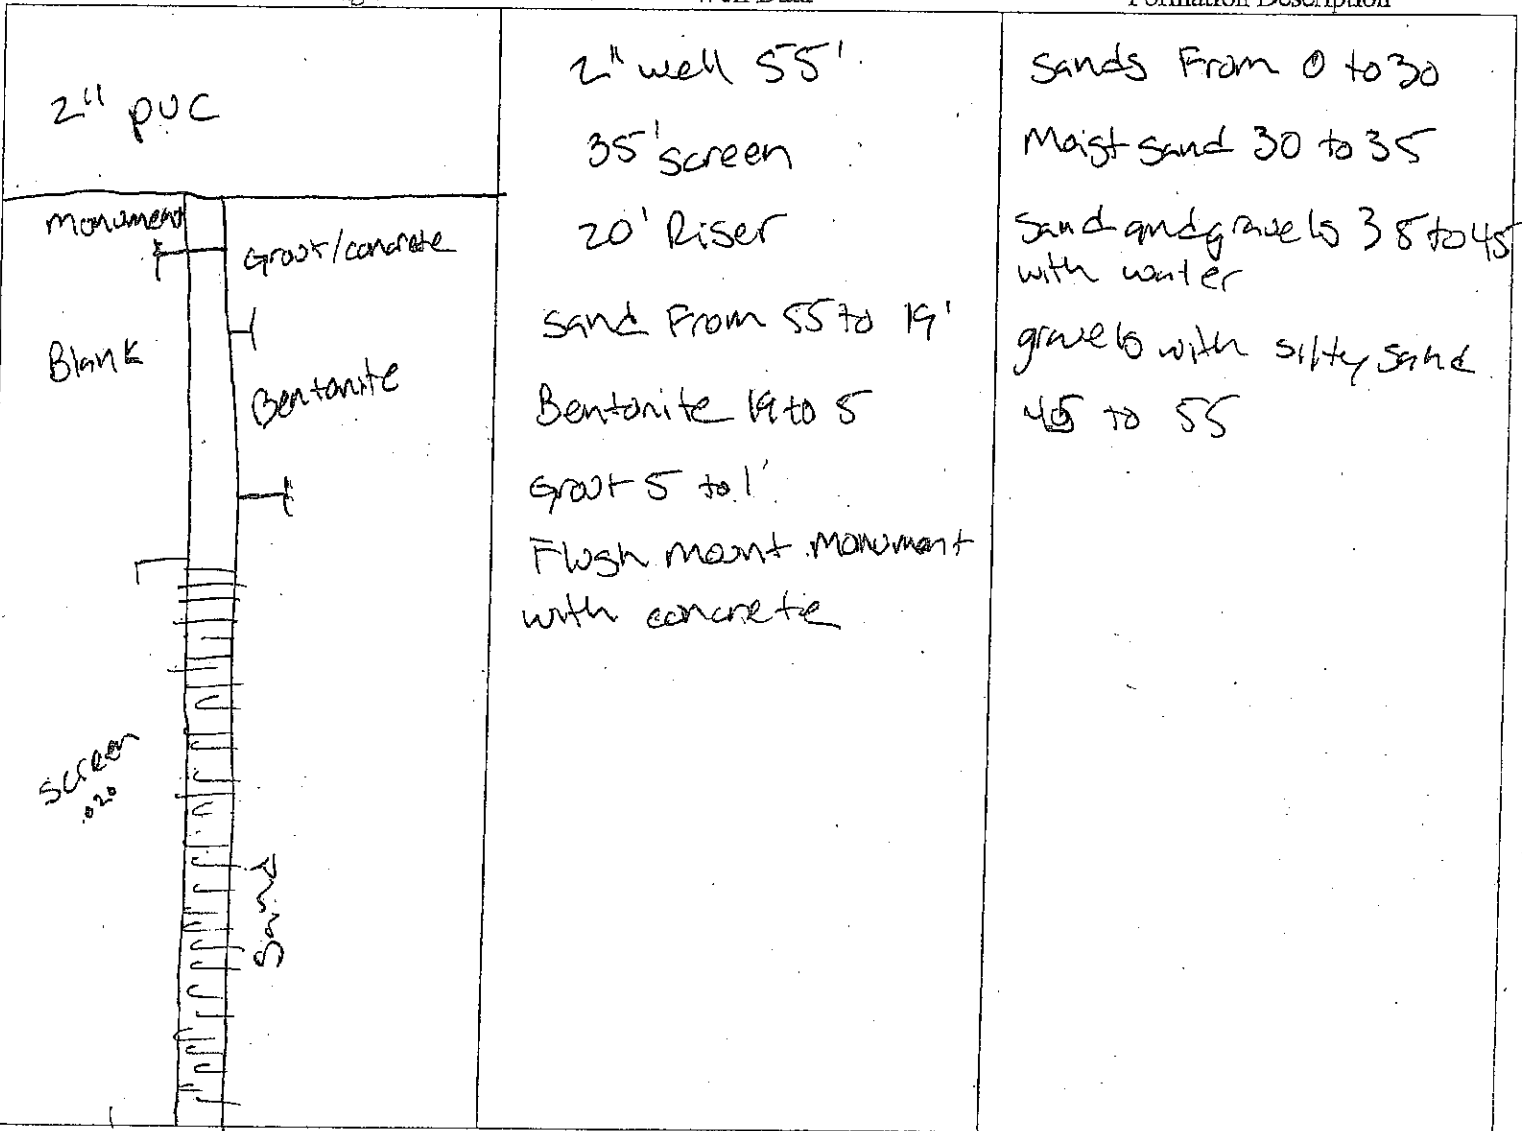 Well Data
Formation Description
2" PVC
Monument
Grout/concrete
Blank
Bentonite
Screen
.020
Sand
2" well 55'
35' screen
20' Riser
Sand From 55 to 19'
Bentonite 19 to 5
Grout 5 to 1'
Flush mount Monument
with concrete
Sands From 0 to 30
Moist sand 30 to 35
Sand and gravels 35 to 45
with water
gravels with silty sand
45 to 55